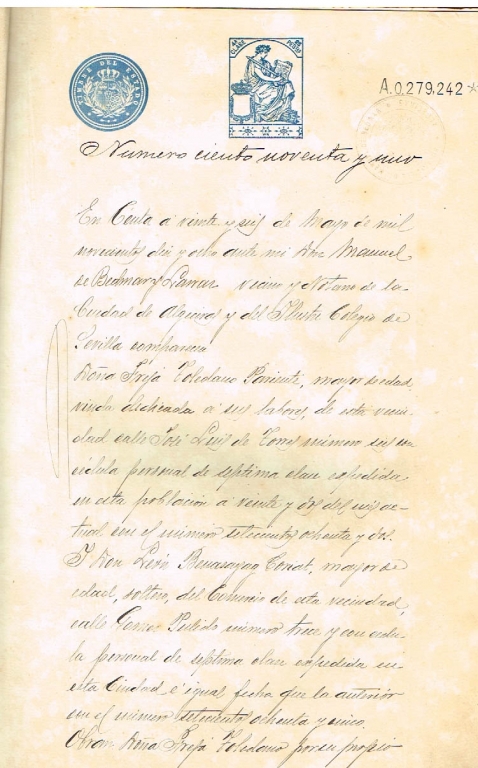 TIMBRE DEL ESTADO
CLASE
A.0.279.242*
Numero ciento noventa y uno
En Ceuta á veinte y seis de Mayo de mil
novecientos diez y ocho ante mí Don Manuel
de Bedmar y Larraz vecino y Notario de la
Ciudad de Algeciras y del Ilustre Colegio de
Sevilla comparecen
Doña Toledano Pariente, mayor de edad,
viuda dedicada á sus labores, de esta vecin-
dad calle José Luis de Torres número seis
cédula personal de septima clase expedida
en esta población á veinte y dos del mes ac-
tual con el número setecientos ochenta y dos.
Y Don Benasayag Coriat, mayor de
edad, soltero, del Comercio de esta vecindad,
calle Gomez Pulido número trece y con cédu-
la personal de septima clase expedida en
esta Ciudad é igual fecha que la anterior
con el número setecientos ochenta y cinco.
Obran Doña Toledano por su propio